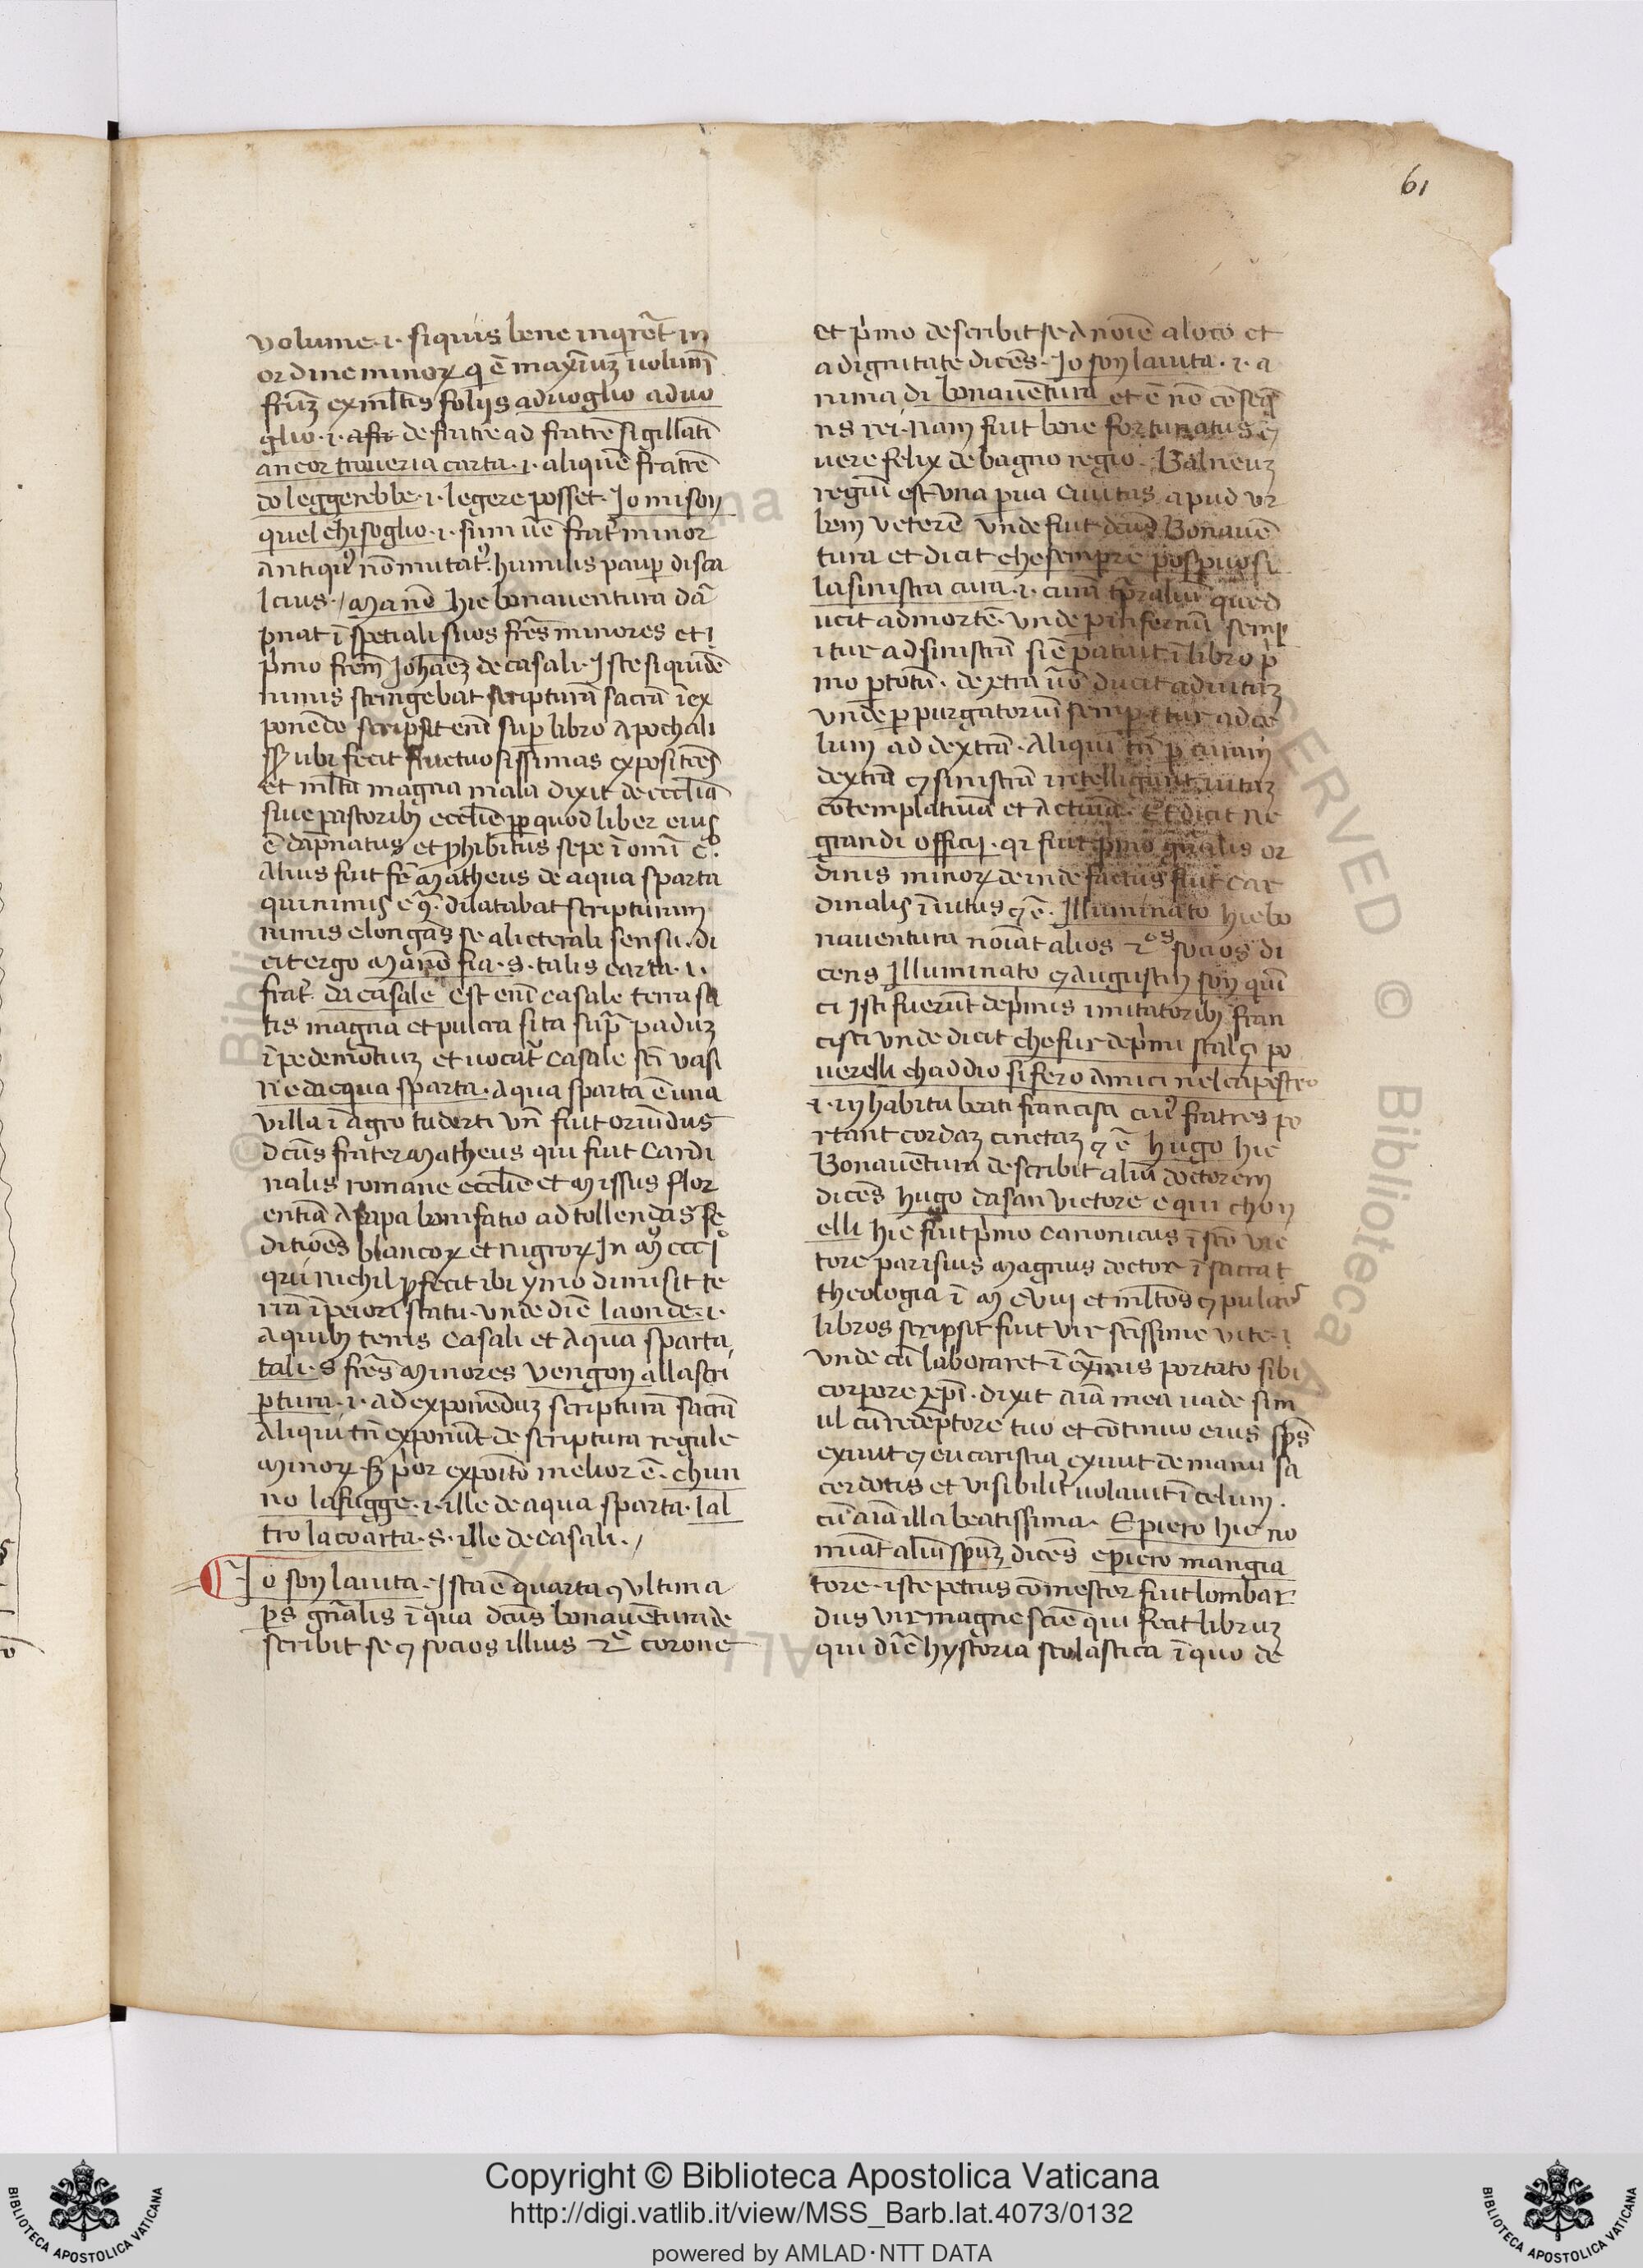 61
volume .i. siquis bene inqreret in
ordine minoꝝ q ē maxīuꝫ uolum̄
frūꝫ ex ml̄tis folijs aduoglio aduo
glio .i. de fratre ad fratrē sigillatī
ancor troueria carta .i. aliquē fratrē
do leggerebbe .i. legere posset. Io mi son
quel chi soglio .i. sum uē frat minor
antiqꝰ nō mutatꝰ humilis paup disca
lcius. Ma nō hic bonauentura dā
pnat ī speciali suos frēs minores et
pͥmo frem̄ Joħem de casali. Iste siquidē
nimis stringebat scripturā sacrā ī ex
ponēdo scripsit enī sup libro Apochali
ubi fecit fructuosissimas expositōes
et ml̄ta magna mala dixit de eccl̄ia
siue pastoribꝰ eccl̄ie ꝓp quod liber eius
ē dāpnatus et ꝓhibitus sepe ī
Alius fuit fr̄ Matheus de aqua sparta
qui nimis ē ꝯͣ dilatabat scripturam
nimis elongās se a licterali sensu. di
cit ergo Ma nō fia .s. talis carta .i.
frat. da casale est enī casale terra sa
tis magna et pulcra sita supͣ paduꝫ
ī pedemōtiuꝫ et uocat̄ casale scī vasi
Ne dacqua sparta. Aqua sparta ē una
villa ī agro tuderti vn̄ fuit oriūdus
dcūs frater Matheus qui fuit cardi
nalis romane eccl̄ie et missus flor
entiā a papa bonifatio ad tollendas se
ditiōes blancoꝝ et nigroꝝ In Mͦ cccj
qui nichil ꝓfecit ibi ymo dimisit te
rrā ī peiori statu. vnde dīc laonde .i.
a quibꝰ terris Casali et Aqua sparta
tali .s. frēs Minores vengon allascri
ptura .i. ad exponēduꝫ scripturā sacrā
Aliqui tn̄ exponūt de scriptura regule
Minoꝝ. sꝫ pͥor expoītō melior ē. chun
no la fugge .i. ille de aqua sparta. lal
tro la coarta .s. ille de casali.
Io son lauita. Ista ē quarta ꝯ vltima
ps gnāalis ī qua dcūs bonauētura de
scribit se ꝯ socios illius 2ͤ corone
et pͥmo describit se a noīe a loco et
a dignitate dicēs. Io son lauita .i. a
nima di bonauētura et ē nō cōseqē
ns rei. nam fuit bone fortunatus ꝯ
uere felix de bagno regio. Balneuꝫ
regiū est vna pua ciuitas apud vr
bem veterē vnde fuit dcūs Bonauē
tura et dicit che sempre pospuosi
la sinistra cura .i. curā tp̄raliū que d
ucit ad mortē. vnde p infernū semp
itur ad sinistrā sic patuit ī libro pͥ
mo p totū. dextra uͦ ducit ad uitaꝫ
vnde p purgatoriū semp itur ad ce
lum ad dextrā. Aliqui tn̄ p curam
dextrā ꝯ sinistrā intelligunt uitaꝫ
cōtemplatiuā et actiuā. Et dicit ne
grandi officij. qͥ fuit pͥmo gnāalis or
dinis minoꝝ deinde factus fuit car
dinalis ī uitus ꝯ ē. Illuminato hic bo
nauentura noīat alios 2ͦˢ socios di
cens Illuminato ꝯ Augustin son quī
ci Isti fuerūt de pͥmis imitatoribꝰ fran
cisci vnde dicit che fur de pͥmi scalçi po
uerelli chaddio si fero amici nel capestro
.i. in habitu beati francisci cuiꝰ fratres po
rtant cordaꝫ cinctaꝫ ꝯ ē hugo hic
Bonauētura describit aliū doctorem
dicēs hugo da san victore e qui chon
elli hic fuit pͥmo canonicus ī scō vic
tore parisius magnus doctor ī sacra t
theologia ī M cviij et ml̄tos ꝯ pulcr̄
libros scripsit fuit vir scīssime vite.
vnde cū laboraret ī exͣmis portato sibi
corpore xpī. dixit aīa mea uade sim
ul cū redēptore tuo et cōtinuo eius spūs
exiuit ꝯ eucaristia exiuit de manu sa
cerdotis et visibilit̄ uolauit ī celum.
cū aīa illa beatissima. E piero hic no
minat aliū spūꝫ dicēs e piero mangia
tore. iste petrus cōmestor fuit lombar
dus vir magne sciē qui fecit libruꝫ
qui dīc hystoria scolastica ī quo de
Copyright © Biblioteca Apostolica Vaticana
http://digi.vatlib.it/view/MSS_Barb.lat.4073/0132
powered by AMLAD·NTT DATA
BIBLIOTECA APOSTOLICA VATICANA
BIBLIOTECA APOSTOLICA VATICANA